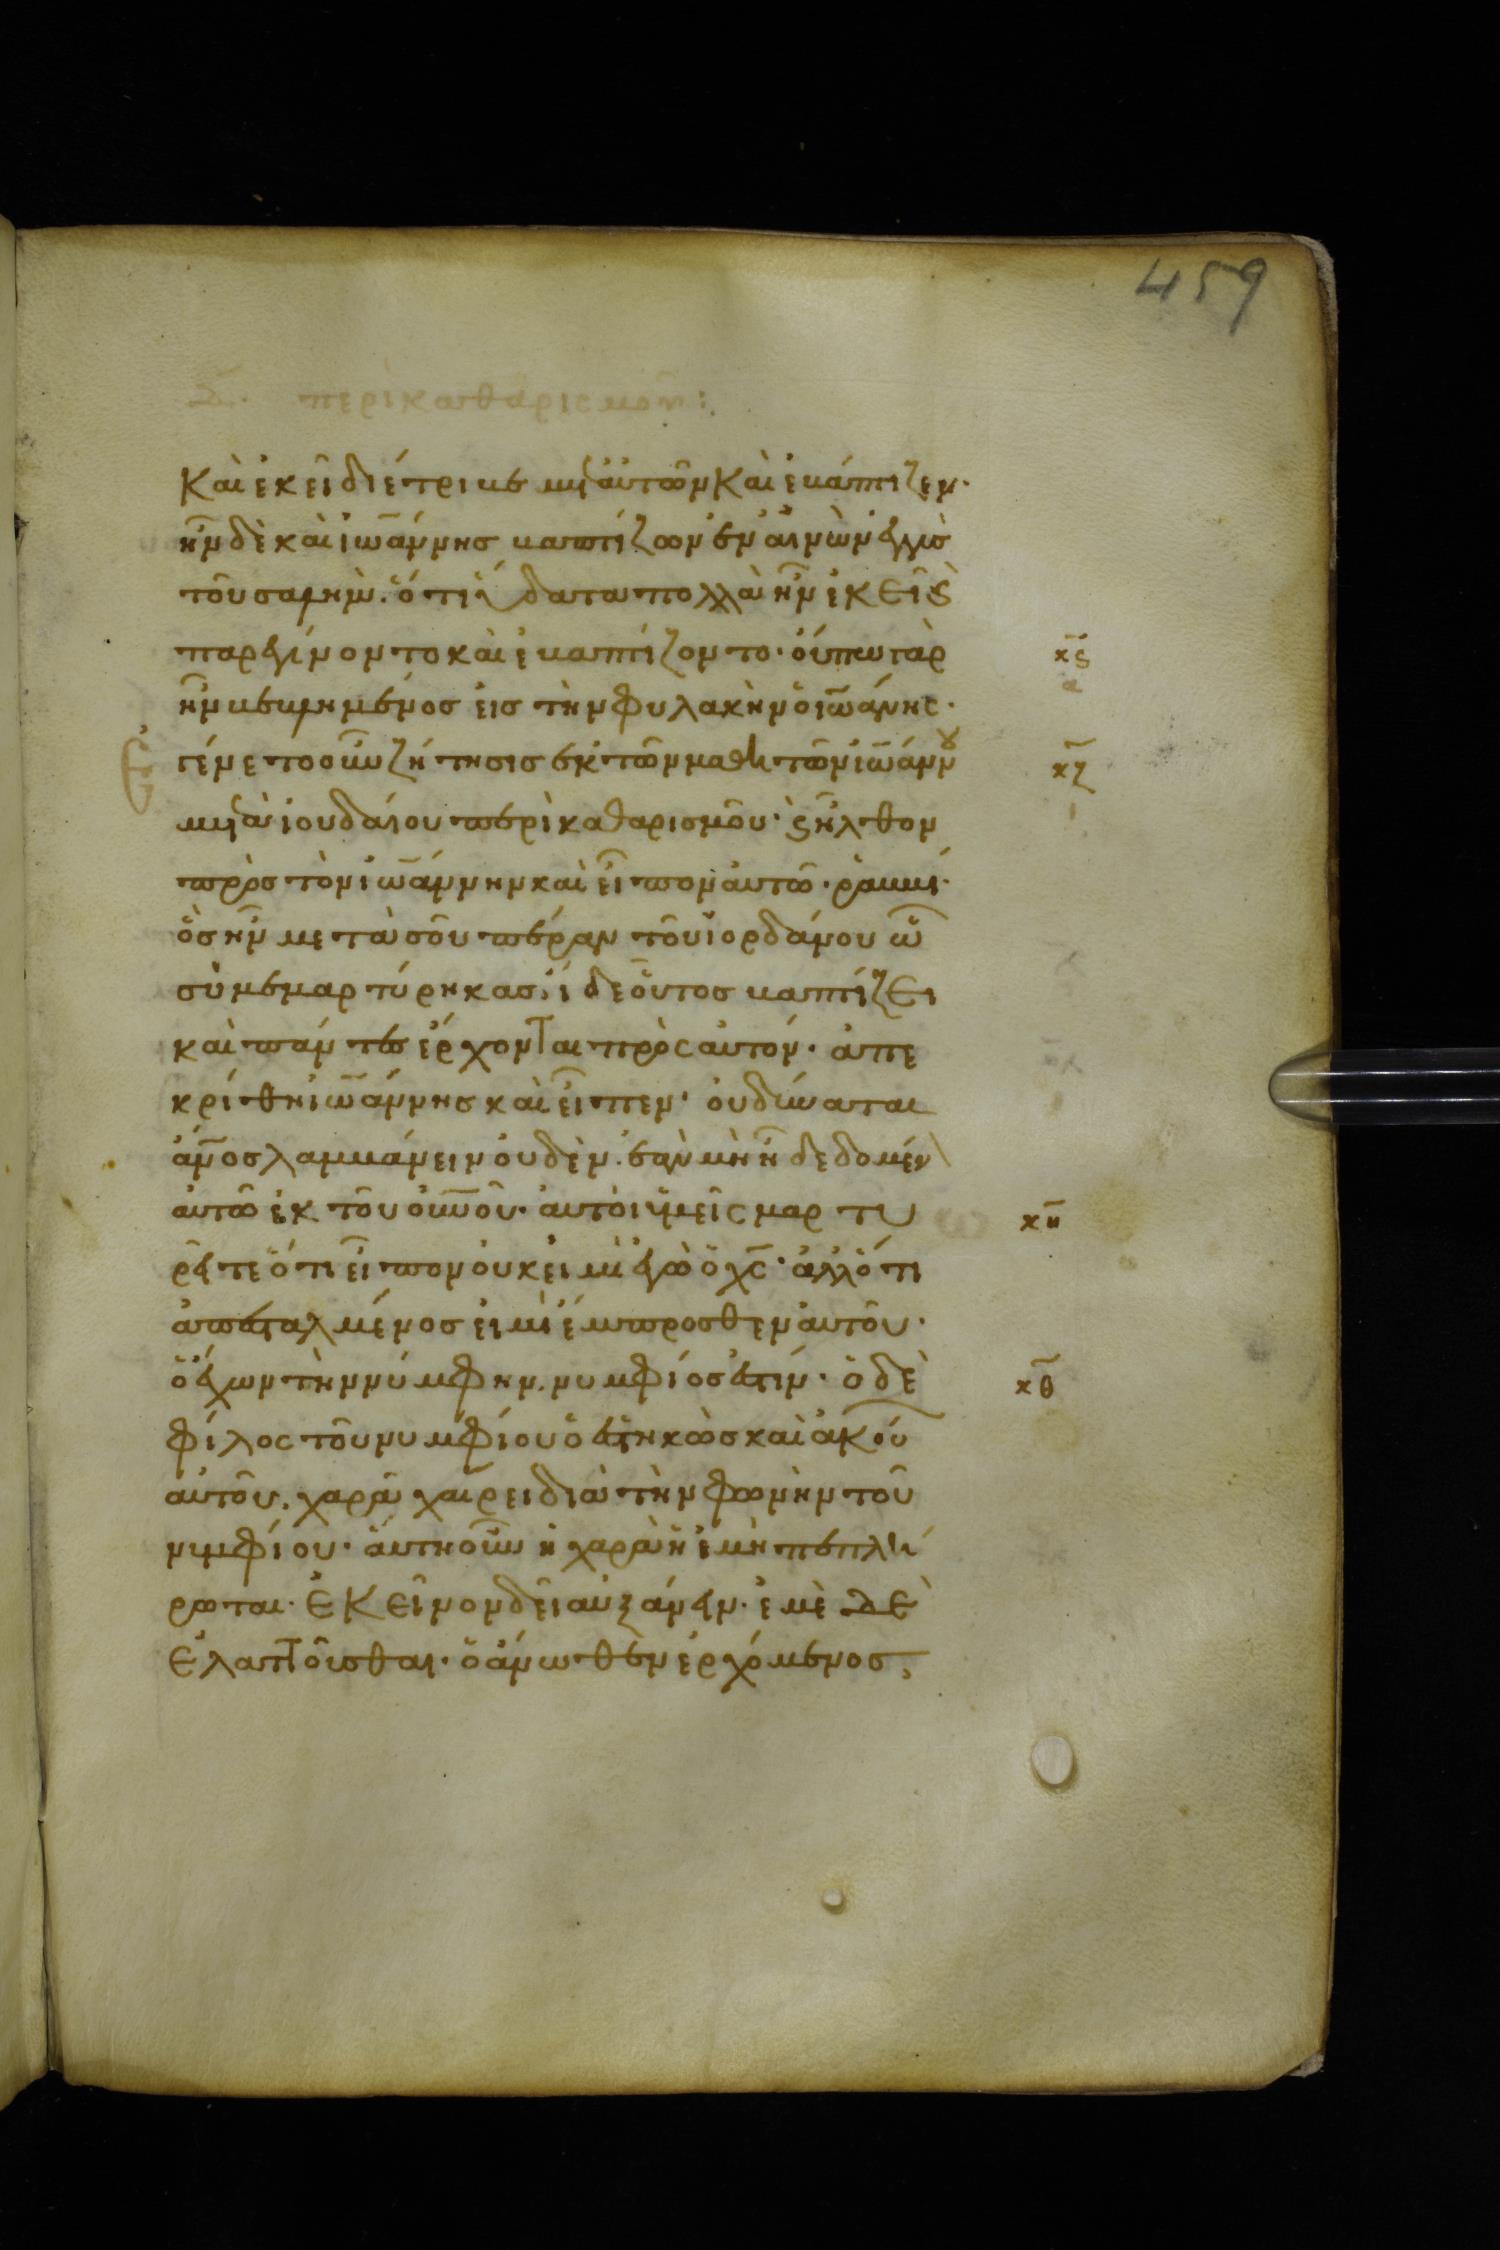 459
δ. περὶ καθαρισμοῦ:
Καὶ ἐκεῖ διέτριβε μετ' αὐτῶν Καὶ ἐβάπτιζεν·
ἦν δὲ καὶ ἰωάννης βαπτίζων ἐν αἰνὼν ἐγγὺς
τοῦ σαλημ. ὅτι ὕδατα πολλὰ ἦν ἐκεῖ Ϛ
παρεγίνοντο καὶ ἐβαπτίζοντο· οὔπω γὰρ
κϛ
α
ἦν βεβλημένος εἰς τὴν φυλακὴν ὁ ἰωάννης·
Ἐγένετο οὖν ζήτησις ἐκ τῶν μαθη τῶν ἰωάννου
κζ
ι
μετὰ ἰουδαίου περὶ καθαρισμοῦ· Ϛ ἦλθον
πρὸς τὸν ἰωάννην καὶ εἶπον αὐτῶ· ῥαββί·
ὃς ἦν μετὰ σοῦ πέραν τοῦ ἰορδάνου ὧ
σὺ μεμαρτύρηκας· ἴδε οὗτος βαπτίζει
καὶ πάντες ἔρχονται πρὸς αὐτόν· ἀπε
κρίθη ἰωάννης καὶ εἶπεν· οὐ δύναται
ἄνος λαμβάνειν οὐδὲν· ἐὰν μὴ ἦ δεδομέν
αὐτῶ ἐκ τοῦ οὐνοῦ· αὐτοὶ ὑμεῖς μαρτυ
κη
ρεῖτε ὅτι εἶπον οὐκ εἰμὶ ἐγὼ ὁ χς· ἀλλ' ὅτι
ἀπεσταλμένος εἰμὶ ἔμπροσθεν αὐτοῦ·
ὁ ἔχων τὴν νύμφην, νυμφίος ἐστίν· ὁ δὲ
κθ
φίλος τοῦ νυμφίου ὁ ἑστηκὼς καὶ ἀκού
αὐτοῦ, χαρᾶ χαίρει διὰ τὴν φωνὴν τοῦ
νυμφίου· αὕτη οὖν ἡ χαρὰ ἡ ἐμὴ πεπλή
ρωται· ἐκεῖνον δεῖ αὐξάνειν· ἐμὲ δὲ
ἐλαττοῦσθαι· ὁ ἄνωθεν ἐρχόμενος,